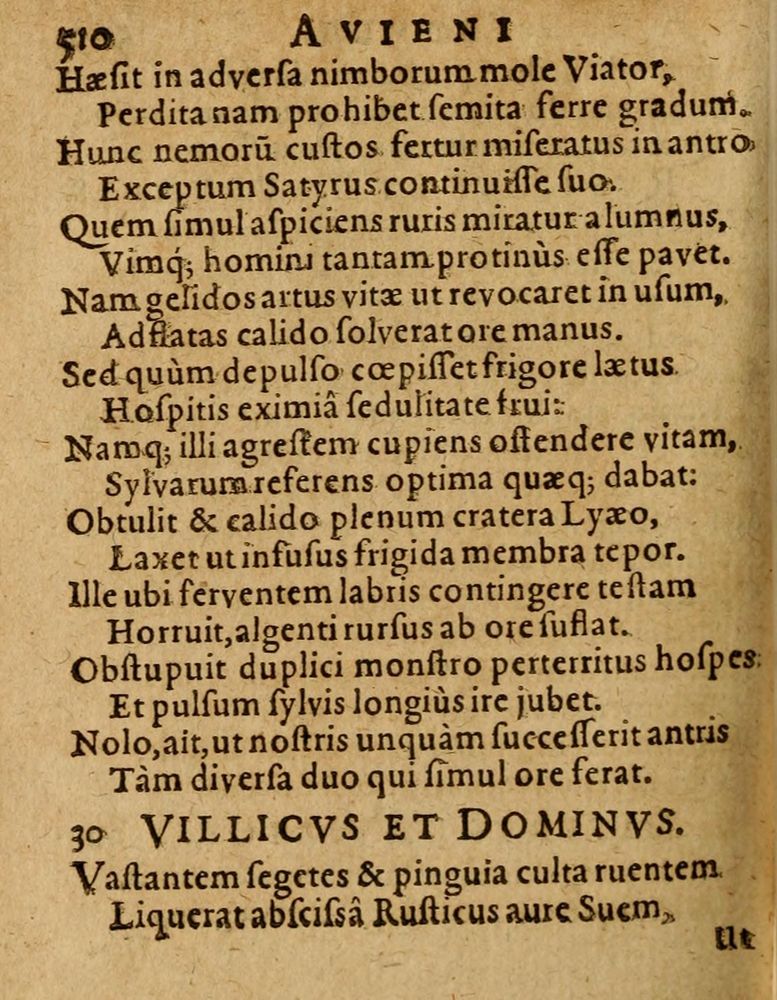 510 AVIENI
Hæſit in adverſa nimborum mole Viator,
Perdita nam prohibet ſemita ferre gradum.
Hunc nemorū cuſtos fertur miſeratus in antro
Exceptum Satyrus continuiſſe ſuo.
Quem ſimul aſpiciens ruris miratur alumnus,
Vimq; homini tantam protinùs eſſe pavet.
Nam gelidos artus vitæ ut revocaret in uſum,
Adflatas calido ſolverat ore manus.
Sed quùm depulſo cœpiſſet frigore lætus
Hoſpitis eximiâ ſedulitate frui:
Namq; illi agreſtem cupiens oſtendere vitam,
Sylvarum referens optima quæq; dabat:
Obtulit & calido plenum cratera Lyæo,
Laxet ut infuſus frigida membra tepor.
Ille ubi ferventem labris contingere teſtam
Horruit, algenti rurſus ab ore ſuflat.
Obſtupuit duplici monſtro perterritus hoſpes,
Et pulſum ſylvis longiùs ire jubet.
Nolo, ait, ut noſtris unquàm ſucceſſerit antris
Tàm diverſa duo qui ſimul ore ferat.
30 VILLICVS ET DOMINVS.
Vaſtantem ſegetes & pinguia culta ruentem
Liquerat abſciſsâ Ruſticus aure Suem,
Ut